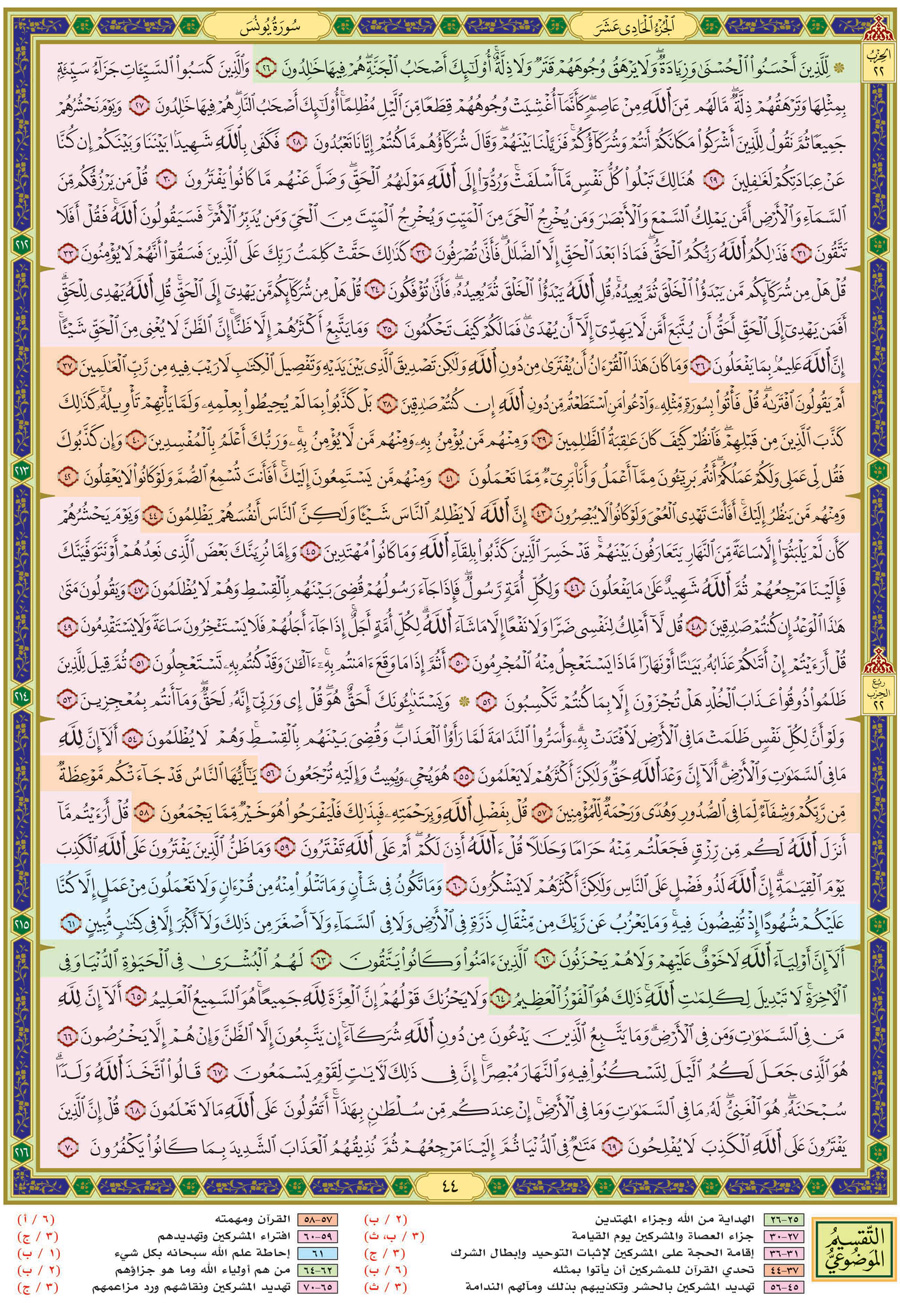 الجُزْءُ الحَادِي عَشَرَ
سُورَةُ يُونُسَ
الحِزْبُ ٢٢
۞ لِّلَّذِينَ أَحْسَنُوا۟ ٱلْحُسْنَىٰ وَزِيَادَةٌ ۖ وَلَا يَرْهَقُ وُجُوهَهُمْ قَتَرٌ وَلَا ذِلَّةٌ ۚ أُو۟لَٰٓئِكَ أَصْحَٰبُ ٱلْجَنَّةِ ۖ هُمْ فِيهَا خَٰلِدُونَ ٢٦ وَٱلَّذِينَ كَسَبُوا۟ ٱلسَّيِّـَٔاتِ جَزَآءُ سَيِّئَةٍۭ
بِمِثْلِهَا وَتَرْهَقُهُمْ ذِلَّةٌ ۖ مَّا لَهُم مِّنَ ٱللَّهِ مِنْ عَاصِمٍ ۖ كَأَنَّمَآ أُغْشِيَتْ وُجُوهُهُمْ قِطَعًا مِّنَ ٱلَّيْلِ مُظْلِمًا ۚ أُو۟لَٰٓئِكَ أَصْحَٰبُ ٱلنَّارِ ۖ هُمْ فِيهَا خَٰلِدُونَ ٢٧ وَيَوْمَ نَحْشُرُهُمْ
جَمِيعًا ثُمَّ نَقُولُ لِلَّذِينَ أَشْرَكُوا۟ مَكَانَكُمْ أَنتُمْ وَشُرَكَآؤُكُمْ ۚ فَزَيَّلْنَا بَيْنَهُمْ ۖ وَقَالَ شُرَكَآؤُهُم مَّا كُنتُمْ إِيَّانَا تَعْبُدُونَ ٢٨ فَكَفَىٰ بِٱللَّهِ شَهِيدًۢا بَيْنَنَا وَبَيْنَكُمْ إِن كُنَّا
عَنْ عِبَادَتِكُمْ لَغَٰفِلِينَ ٢٩ هُنَالِكَ تَبْلُوا۟ كُلُّ نَفْسٍ مَّآ أَسْلَفَتْ ۚ وَرُدُّوٓا۟ إِلَى ٱللَّهِ مَوْلَىٰهُمُ ٱلْحَقِّ ۖ وَضَلَّ عَنْهُم مَّا كَانُوا۟ يَفْتَرُونَ ٣٠ قُلْ مَن يَرْزُقُكُم مِّنَ
ٱلسَّمَآءِ وَٱلْأَرْضِ أَمَّن يَمْلِكُ ٱلسَّمْعَ وَٱلْأَبْصَٰرَ وَمَن يُخْرِجُ ٱلْحَىَّ مِنَ ٱلْمَيِّتِ وَيُخْرِجُ ٱلْمَيِّتَ مِنَ ٱلْحَىِّ وَمَن يُدَبِّرُ ٱلْأَمْرَ ۚ فَسَيَقُولُونَ ٱللَّهُ ۚ فَقُلْ أَفَلَا
تَتَّقُونَ ٣١ فَذَٰلِكُمُ ٱللَّهُ رَبُّكُمُ ٱلْحَقُّ ۖ فَمَاذَا بَعْدَ ٱلْحَقِّ إِلَّا ٱلضَّلَٰلُ ۖ فَأَنَّىٰ تُصْرَفُونَ ٣٢ كَذَٰلِكَ حَقَّتْ كَلِمَتُ رَبِّكَ عَلَى ٱلَّذِينَ فَسَقُوٓا۟ أَنَّهُمْ لَا يُؤْمِنُونَ ٣٣
٢١٢
قُلْ هَلْ مِن شُرَكَآئِكُم مَّن يَبْدَؤُا۟ ٱلْخَلْقَ ثُمَّ يُعِيدُهُۥ ۚ قُلِ ٱللَّهُ يَبْدَؤُا۟ ٱلْخَلْقَ ثُمَّ يُعِيدُهُۥ ۖ فَأَنَّىٰ تُؤْفَكُونَ ٣٤ قُلْ هَلْ مِن شُرَكَآئِكُم مَّن يَهْدِىٓ إِلَى ٱلْحَقِّ ۚ قُلِ ٱللَّهُ يَهْدِى لِلْحَقِّ ۗ
أَفَمَن يَهْدِىٓ إِلَى ٱلْحَقِّ أَحَقُّ أَن يُتَّبَعَ أَمَّن لَّا يَهِدِّىٓ إِلَّآ أَن يُهْدَىٰ ۖ فَمَا لَكُمْ كَيْفَ تَحْكُمُونَ ٣٥ وَمَا يَتَّبِعُ أَكْثَرُهُمْ إِلَّا ظَنًّا ۚ إِنَّ ٱلظَّنَّ لَا يُغْنِى مِنَ ٱلْحَقِّ شَيْـًٔا ۚ
إِنَّ ٱللَّهَ عَلِيمٌۢ بِمَا يَفْعَلُونَ ٣٦ وَمَا كَانَ هَٰذَا ٱلْقُرْءَانُ أَن يُفْتَرَىٰ مِن دُونِ ٱللَّهِ وَلَٰكِن تَصْدِيقَ ٱلَّذِى بَيْنَ يَدَيْهِ وَتَفْصِيلَ ٱلْكِتَٰبِ لَا رَيْبَ فِيهِ مِن رَّبِّ ٱلْعَٰلَمِينَ ٣٧
أَمْ يَقُولُونَ ٱفْتَرَىٰهُ ۖ قُلْ فَأْتُوا۟ بِسُورَةٍ مِّثْلِهِۦ وَٱدْعُوا۟ مَنِ ٱسْتَطَعْتُم مِّن دُونِ ٱللَّهِ إِن كُنتُمْ صَٰدِقِينَ ٣٨ بَلْ كَذَّبُوا۟ بِمَا لَمْ يُحِيطُوا۟ بِعِلْمِهِۦ وَلَمَّا يَأْتِهِمْ تَأْوِيلُهُۥ ۚ كَذَٰلِكَ
كَذَّبَ ٱلَّذِينَ مِن قَبْلِهِمْ ۖ فَٱنظُرْ كَيْفَ كَانَ عَٰقِبَةُ ٱلظَّٰلِمِينَ ٣٩ وَمِنْهُم مَّن يُؤْمِنُ بِهِۦ وَمِنْهُم مَّن لَّا يُؤْمِنُ بِهِۦ ۚ وَرَبُّكَ أَعْلَمُ بِٱلْمُفْسِدِينَ ٤٠ وَإِن كَذَّبُوكَ
فَقُل لِّى عَمَلِى وَلَكُمْ عَمَلُكُمْ ۖ أَنتُم بَرِيٓـُٔونَ مِمَّآ أَعْمَلُ وَأَنَا۠ بَرِىٓءٌ مِّمَّا تَعْمَلُونَ ٤١ وَمِنْهُم مَّن يَسْتَمِعُونَ إِلَيْكَ ۚ أَفَأَنتَ تُسْمِعُ ٱلصُّمَّ وَلَوْ كَانُوا۟ لَا يَعْقِلُونَ ٤٢
٢١٣
وَمِنْهُم مَّن يَنظُرُ إِلَيْكَ ۚ أَفَأَنتَ تَهْدِى ٱلْعُمْىَ وَلَوْ كَانُوا۟ لَا يُبْصِرُونَ ٤٣ إِنَّ ٱللَّهَ لَا يَظْلِمُ ٱلنَّاسَ شَيْـًٔا وَلَٰكِنَّ ٱلنَّاسَ أَنفُسَهُمْ يَظْلِمُونَ ٤٤ وَيَوْمَ يَحْشُرُهُمْ
كَأَن لَّمْ يَلْبَثُوٓا۟ إِلَّا سَاعَةً مِّنَ ٱلنَّهَارِ يَتَعَارَفُونَ بَيْنَهُمْ ۚ قَدْ خَسِرَ ٱلَّذِينَ كَذَّبُوا۟ بِلِقَآءِ ٱللَّهِ وَمَا كَانُوا۟ مُهْتَدِينَ ٤٥ وَإِمَّا نُرِيَنَّكَ بَعْضَ ٱلَّذِى نَعِدُهُمْ أَوْ نَتَوَفَّيَنَّكَ
فَإِلَيْنَا مَرْجِعُهُمْ ثُمَّ ٱللَّهُ شَهِيدٌ عَلَىٰ مَا يَفْعَلُونَ ٤٦ وَلِكُلِّ أُمَّةٍ رَّسُولٌ ۖ فَإِذَا جَآءَ رَسُولُهُمْ قُضِىَ بَيْنَهُم بِٱلْقِسْطِ وَهُمْ لَا يُظْلَمُونَ ٤٧ وَيَقُولُونَ مَتَىٰ
هَٰذَا ٱلْوَعْدُ إِن كُنتُمْ صَٰدِقِينَ ٤٨ قُل لَّآ أَمْلِكُ لِنَفْسِى ضَرًّا وَلَا نَفْعًا إِلَّا مَا شَآءَ ٱللَّهُ ۗ لِكُلِّ أُمَّةٍ أَجَلٌ ۚ إِذَا جَآءَ أَجَلُهُمْ فَلَا يَسْتَـْٔخِرُونَ سَاعَةً ۖ وَلَا يَسْتَقْدِمُونَ ٤٩
قُلْ أَرَءَيْتُمْ إِنْ أَتَىٰكُمْ عَذَابُهُۥ بَيَٰتًا أَوْ نَهَارًا مَّاذَا يَسْتَعْجِلُ مِنْهُ ٱلْمُجْرِمُونَ ٥٠ أَثُمَّ إِذَا مَا وَقَعَ ءَامَنتُم بِهِۦٓ ۚ ءَآلْـَٰٔنَ وَقَدْ كُنتُم بِهِۦ تَسْتَعْجِلُونَ ٥١ ثُمَّ قِيلَ لِلَّذِينَ
ظَلَمُوا۟ ذُوقُوا۟ عَذَابَ ٱلْخُلْدِ هَلْ تُجْزَوْنَ إِلَّا بِمَا كُنتُمْ تَكْسِبُونَ ٥٢ ۞ وَيَسْتَنۢبِـُٔونَكَ أَحَقٌّ هُوَ ۖ قُلْ إِى وَرَبِّىٓ إِنَّهُۥ لَحَقٌّ ۖ وَمَآ أَنتُم بِمُعْجِزِينَ ٥٣
رُبعُ الحِزْبِ ٢٢
٢١٤
وَلَوْ أَنَّ لِكُلِّ نَفْسٍ ظَلَمَتْ مَا فِى ٱلْأَرْضِ لَٱفْتَدَتْ بِهِۦ ۗ وَأَسَرُّوا۟ ٱلنَّدَامَةَ لَمَّا رَأَوُا۟ ٱلْعَذَابَ ۖ وَقُضِىَ بَيْنَهُم بِٱلْقِسْطِ ۚ وَهُمْ لَا يُظْلَمُونَ ٥٤ أَلَآ إِنَّ لِلَّهِ
مَا فِى ٱلسَّمَٰوَٰتِ وَٱلْأَرْضِ ۗ أَلَآ إِنَّ وَعْدَ ٱللَّهِ حَقٌّ وَلَٰكِنَّ أَكْثَرَهُمْ لَا يَعْلَمُونَ ٥٥ هُوَ يُحْىِۦ وَيُمِيتُ وَإِلَيْهِ تُرْجَعُونَ ٥٦ يَٰٓأَيُّهَا ٱلنَّاسُ قَدْ جَآءَتْكُم مَّوْعِظَةٌ
مِّن رَّبِّكُمْ وَشِفَآءٌ لِّمَا فِى ٱلصُّدُورِ وَهُدًى وَرَحْمَةٌ لِّلْمُؤْمِنِينَ ٥٧ قُلْ بِفَضْلِ ٱللَّهِ وَبِرَحْمَتِهِۦ فَبِذَٰلِكَ فَلْيَفْرَحُوا۟ هُوَ خَيْرٌ مِّمَّا يَجْمَعُونَ ٥٨ قُلْ أَرَءَيْتُم مَّآ
أَنزَلَ ٱللَّهُ لَكُم مِّن رِّزْقٍ فَجَعَلْتُم مِّنْهُ حَرَامًا وَحَلَٰلًا قُلْ ءَآللَّهُ أَذِنَ لَكُمْ ۖ أَمْ عَلَى ٱللَّهِ تَفْتَرُونَ ٥٩ وَمَا ظَنُّ ٱلَّذِينَ يَفْتَرُونَ عَلَى ٱللَّهِ ٱلْكَذِبَ
يَوْمَ ٱلْقِيَٰمَةِ ۗ إِنَّ ٱللَّهَ لَذُو فَضْلٍ عَلَى ٱلنَّاسِ وَلَٰكِنَّ أَكْثَرَهُمْ لَا يَشْكُرُونَ ٦٠ وَمَا تَكُونُ فِى شَأْنٍ وَمَا تَتْلُوا۟ مِنْهُ مِن قُرْءَانٍ وَلَا تَعْمَلُونَ مِنْ عَمَلٍ إِلَّا كُنَّا
عَلَيْكُمْ شُهُودًا إِذْ تُفِيضُونَ فِيهِ ۚ وَمَا يَعْزُبُ عَن رَّبِّكَ مِن مِّثْقَالِ ذَرَّةٍ فِى ٱلْأَرْضِ وَلَا فِى ٱلسَّمَآءِ وَلَآ أَصْغَرَ مِن ذَٰلِكَ وَلَآ أَكْبَرَ إِلَّا فِى كِتَٰبٍ مُّبِينٍ ٦١
٢١٥
أَلَآ إِنَّ أَوْلِيَآءَ ٱللَّهِ لَا خَوْفٌ عَلَيْهِمْ وَلَا هُمْ يَحْزَنُونَ ٦٢ ٱلَّذِينَ ءَامَنُوا۟ وَكَانُوا۟ يَتَّقُونَ ٦٣ لَهُمُ ٱلْبُشْرَىٰ فِى ٱلْحَيَوٰةِ ٱلدُّنْيَا وَفِى
ٱلْـَٔاخِرَةِ ۚ لَا تَبْدِيلَ لِكَلِمَٰتِ ٱللَّهِ ۚ ذَٰلِكَ هُوَ ٱلْفَوْزُ ٱلْعَظِيمُ ٦٤ وَلَا يَحْزُنكَ قَوْلُهُمْ ۘ إِنَّ ٱلْعِزَّةَ لِلَّهِ جَمِيعًا ۚ هُوَ ٱلسَّمِيعُ ٱلْعَلِيمُ ٦٥ أَلَآ إِنَّ لِلَّهِ
مَن فِى ٱلسَّمَٰوَٰتِ وَمَن فِى ٱلْأَرْضِ ۗ وَمَا يَتَّبِعُ ٱلَّذِينَ يَدْعُونَ مِن دُونِ ٱللَّهِ شُرَكَآءَ ۚ إِن يَتَّبِعُونَ إِلَّا ٱلظَّنَّ وَإِنْ هُمْ إِلَّا يَخْرُصُونَ ٦٦
هُوَ ٱلَّذِى جَعَلَ لَكُمُ ٱلَّيْلَ لِتَسْكُنُوا۟ فِيهِ وَٱلنَّهَارَ مُبْصِرًا ۚ إِنَّ فِى ذَٰلِكَ لَـَٔايَٰتٍ لِّقَوْمٍ يَسْمَعُونَ ٦٧ قَالُوا۟ ٱتَّخَذَ ٱللَّهُ وَلَدًا ۗ
سُبْحَٰنَهُۥ ۖ هُوَ ٱلْغَنِىُّ ۖ لَهُۥ مَا فِى ٱلسَّمَٰوَٰتِ وَمَا فِى ٱلْأَرْضِ ۚ إِنْ عِندَكُم مِّن سُلْطَٰنٍۭ بِهَٰذَآ ۚ أَتَقُولُونَ عَلَى ٱللَّهِ مَا لَا تَعْلَمُونَ ٦٨ قُلْ إِنَّ ٱلَّذِينَ
يَفْتَرُونَ عَلَى ٱللَّهِ ٱلْكَذِبَ لَا يُفْلِحُونَ ٦٩ مَتَٰعٌ فِى ٱلدُّنْيَا ثُمَّ إِلَيْنَا مَرْجِعُهُمْ ثُمَّ نُذِيقُهُمُ ٱلْعَذَابَ ٱلشَّدِيدَ بِمَا كَانُوا۟ يَكْفُرُونَ ٧٠
٢١٦
٤٤
التَّقْسِيمُ المَوْضُوعِيُّ
٢٥-٢٦ الهداية من الله وجزاء المهتدين (٢ / ب)
٢٧-٣٠ جزاء العصاة والمشركين يوم القيامة (٣ / ب، ث)
٣١-٣٦ إقامة الحجة على المشركين لإثبات التوحيد وإبطال الشرك (٣ / ج)
٣٧-٤٤ تحدي القرآن للمشركين أن يأتوا بمثله (٦ / ب)
٤٥-٥٦ تهديد المشركين بالحشر وتكذيبهم بذلك ومآلهم الندامة (٣ / ث)
٥٧-٥٨ القرآن ومهمته (٦ / أ)
٥٩-٦٠ افتراء المشركين وتهديدهم (٣ / ج)
٦١ إحاطة علم الله سبحانه بكل شيء (١ / ب)
٦٢-٦٤ من هم أولياء الله وما هو جزاؤهم (٢ / ب)
٦٥-٧٠ تهديد المشركين ونقاشهم ورد مزاعمهم (٣ / ج)